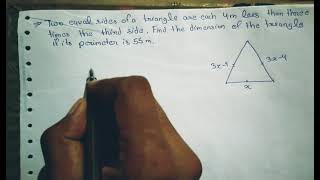 Two equal sides of a triangle are each 4m less than three
times the third side. Find the dimension of the triangle
if its perimeter is 55 m.
3x-4
3x-4
x